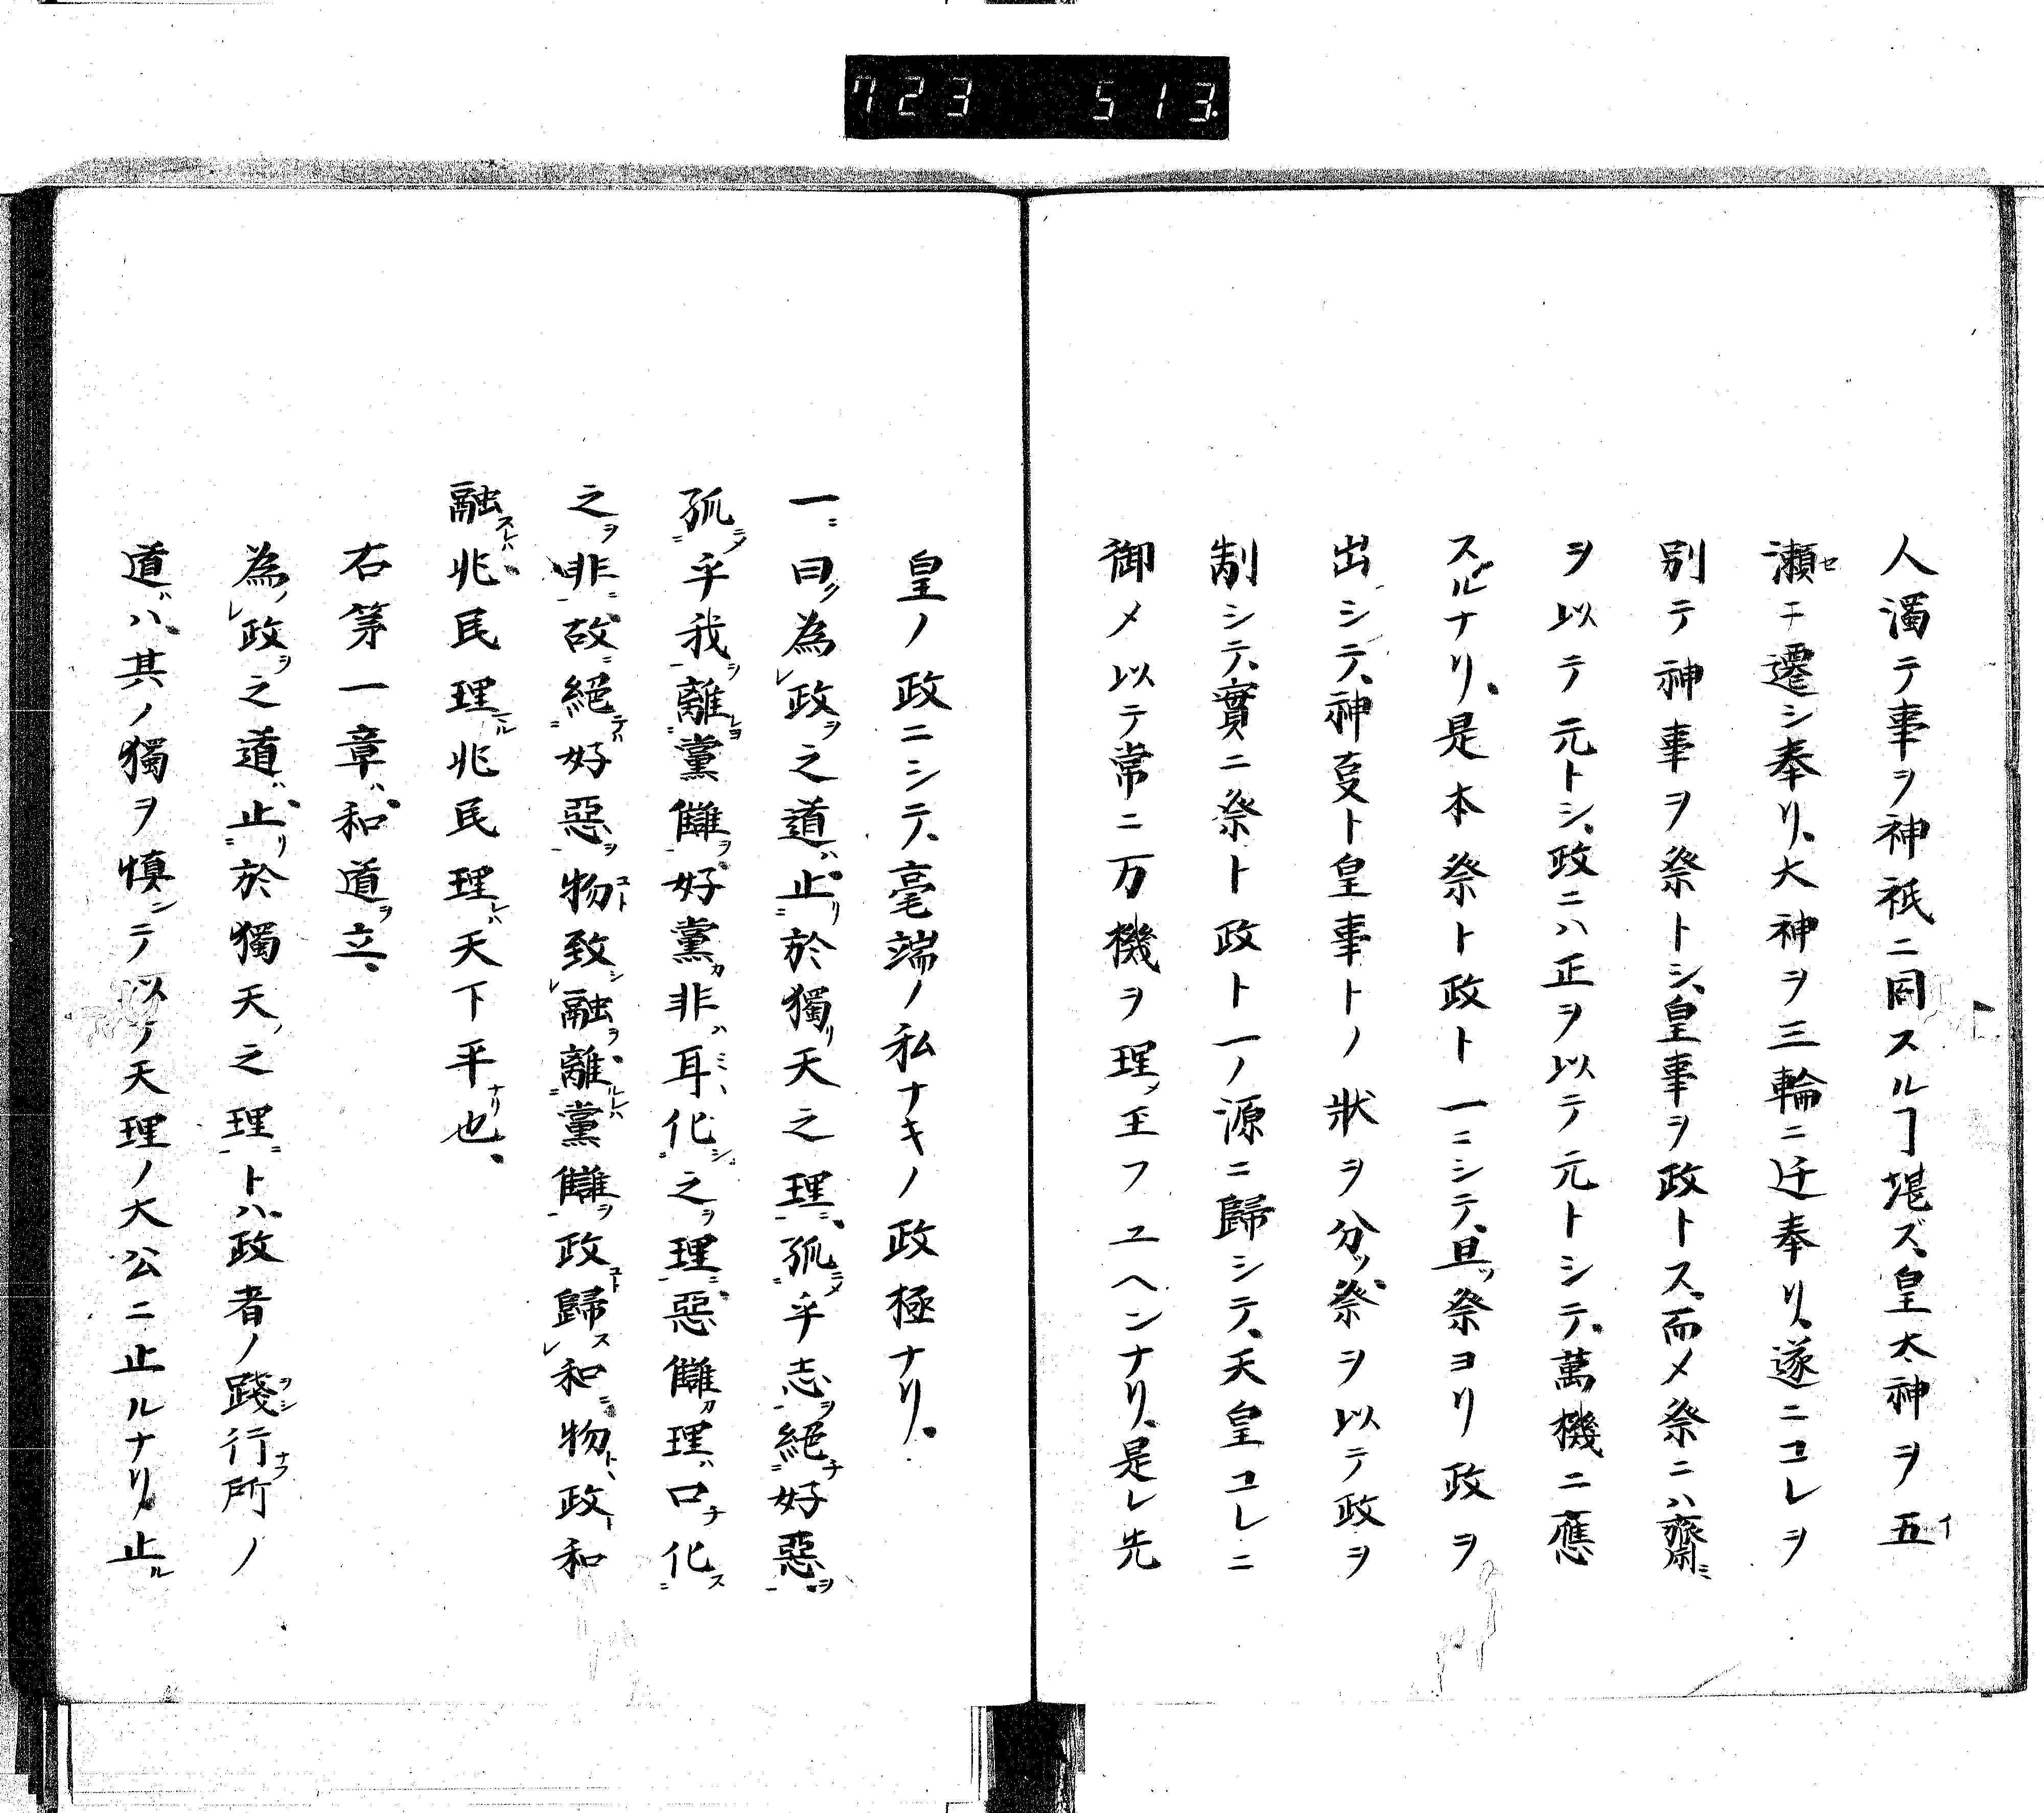 723 513.
人濁テ事ヲ神祇ニ同スルヿ堪ズ、皇太神ヲ五
瀬ニ遷シ奉リ、大神ヲ三輪ニ迁奉リ、遂ニコレヲ
別テ神事ヲ祭トシ、皇事ヲ政トス、而メ祭ニハ齋
ヲ以テ元トシ、政ニハ正ヲ以テ元トシテ、萬機ニ應
スルナリ、是本祭ト政ト一ニシテ、且ッ祭ヨリ政ヲ
出シテ、神㕝ト皇事トノ状ヲ分ッ、祭ヲ以テ政ヲ
制シテ、實ニ祭ト政ト一ノ源ニ歸シテ、天皇コレニ
御メ以テ常ニ万機ヲ理メ王フユヘンナリ、是レ先
皇ノ政ニシテ、毫端ノ私ナキノ政極ナリ、
一曰為政之道止於獨天之理孤乎志絕好惡
孤乎我離黨讎好黨非耳化之理惡讎理口化
之非故絕好惡物致融離黨讎政歸和物政和
融兆民理兆民理天下平也、
右第一章、和道ヲ立、
為政之道止於獨天之理トハ政者ノ踐行所ノ
道ハ、其ノ獨ヲ慎シテ以テ天理ノ大公ニ止ルナリ、止ル